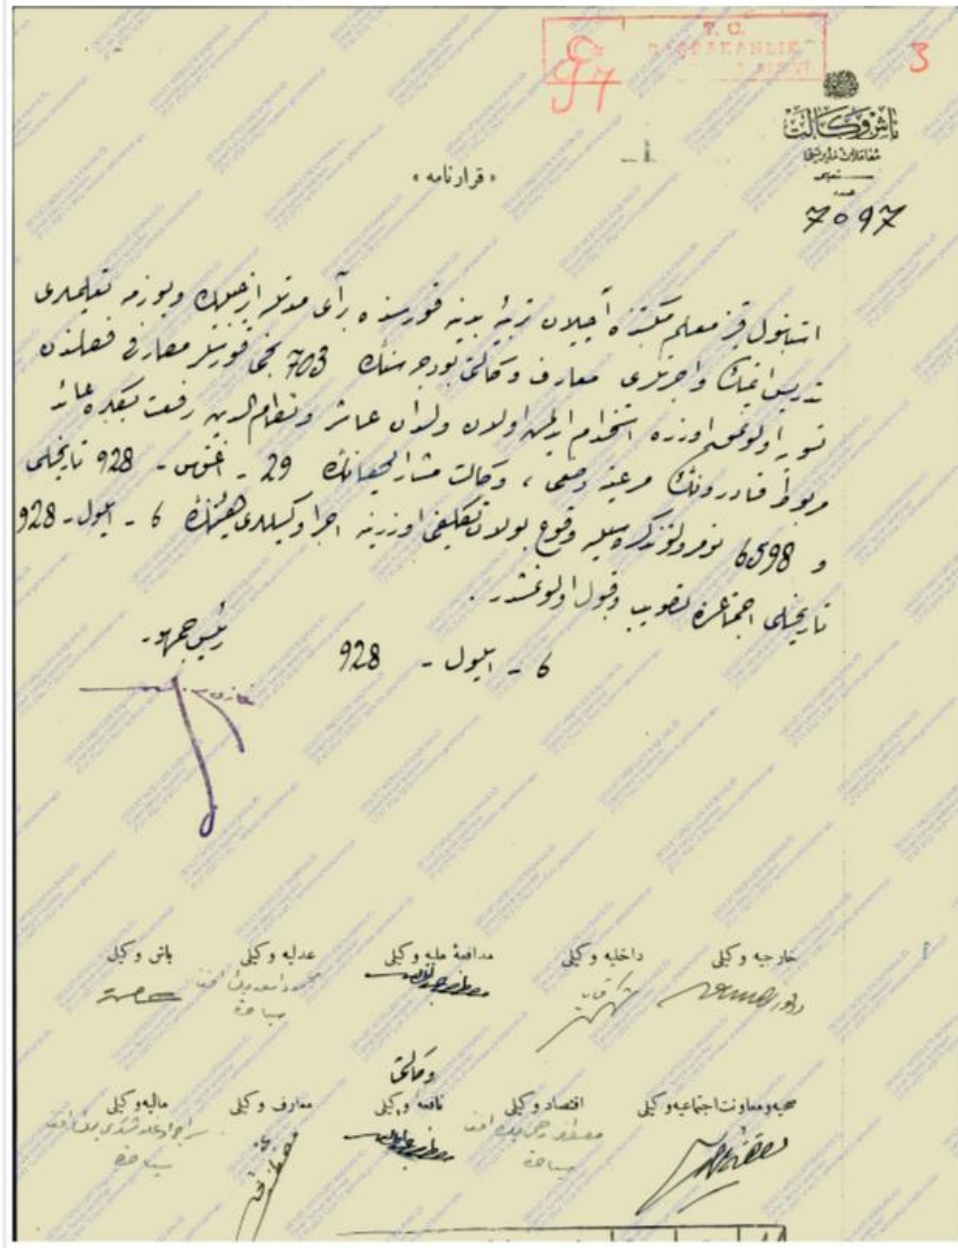 T. C.
BAŞBAKANLIK
97
3
باش وكالت
معاملات مديريتى
شعبه‌سى
عدد
7097
« قرارنامه »
استانبول قيز معلم مكتبنده آچيلان تربيهٔ بدنيه قورسنده رأى موتلر ازجيلك ويوزمه تعليملرى
تدريس ايتمك واجرتلرى معارف وكالتى بودجه‌سنك 703 نجى قورسلر مصارفى فصلندن
تسويه اولونمق اوزره استخدام ايديلمش اولان ولدان عاشر ونظام الدين رفعت بكلره عائد
مربوط قادرونك مرعيته وضعى ، وكالت مشار اليهانك 29 - اغستوس - 928 تاريخلى
و 6598 نومرولو تذكره‌سيله وقوع بولان تكليفى اوزرينه اجرا وكيللرى هيئتنك 6 - ايلول - 928
تاريخلى اجتماعنده تصويب وقبول اولونمشدر .
6 - ايلول - 928
رئيس جمهور
غازى م.
باش وكيلى
عدليه وكيلى
مدافعهٔ مليه وكيلى
داخليه وكيلى
خارجيه وكيلى
عصمت
محمود اسعد بك افندى
سياحتده
ماليه وكيلى
معارف وكيلى
وكالتى
نافعه وكيلى
اقتصاد وكيلى
صحيه ومعاونت اجتماعيه وكيلى
سراج اوغلو شكرى بك افندى
سياحتده
مصطفى رحمى بك افندى
سياحتده